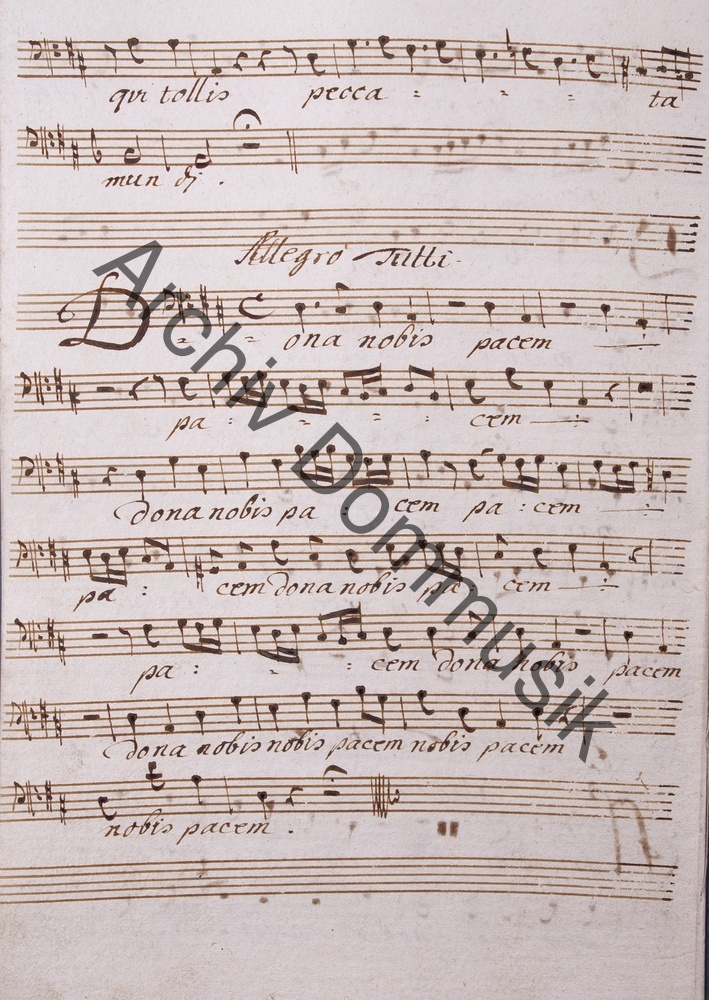 qui tollis pecca = = = ta
mun di .
Allegro Tutti.
D = = ona nobis pacem
pa : = = : cem
dona nobis pa : cem pa : cem
pa : cem dona nobis pa : cem
pa : = : cem dona nobis pacem
dona nobis nobis pacem nobis pacem
nobis pacem .
Archiv Dommusik